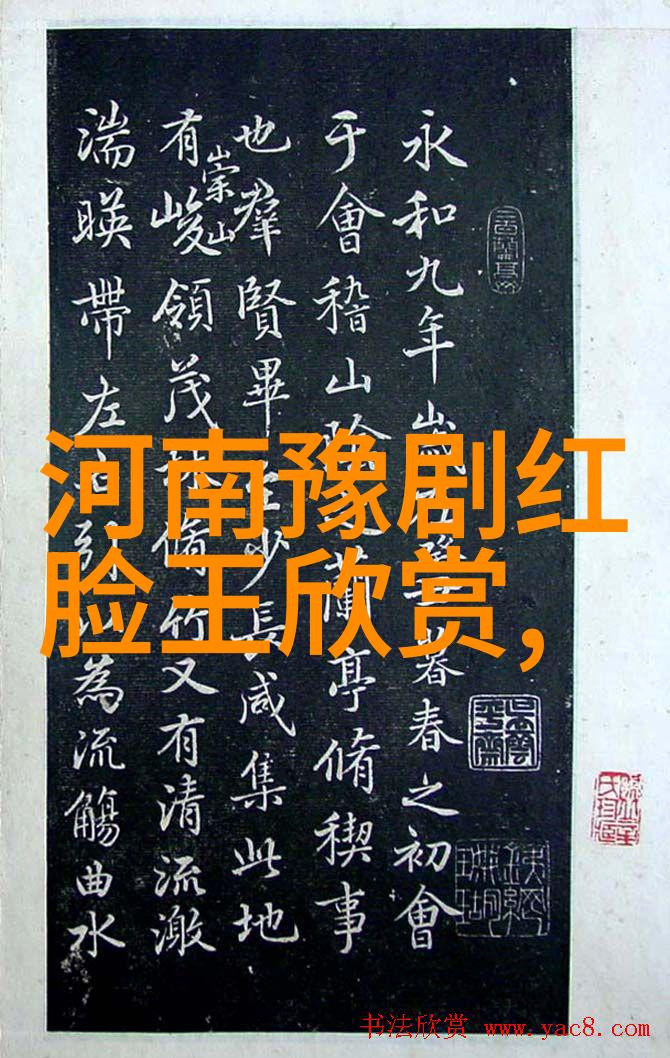 永和九年歲在癸丑暮春之初會
于會稽山陰之蘭亭脩稧事
也羣賢畢至少長咸集此地
有崇山峻領茂林脩竹又有清流激
湍暎帶左右引以為流觴曲水
河南豫剧红
脸王欣赏,
书法欣赏 www.yac8.com